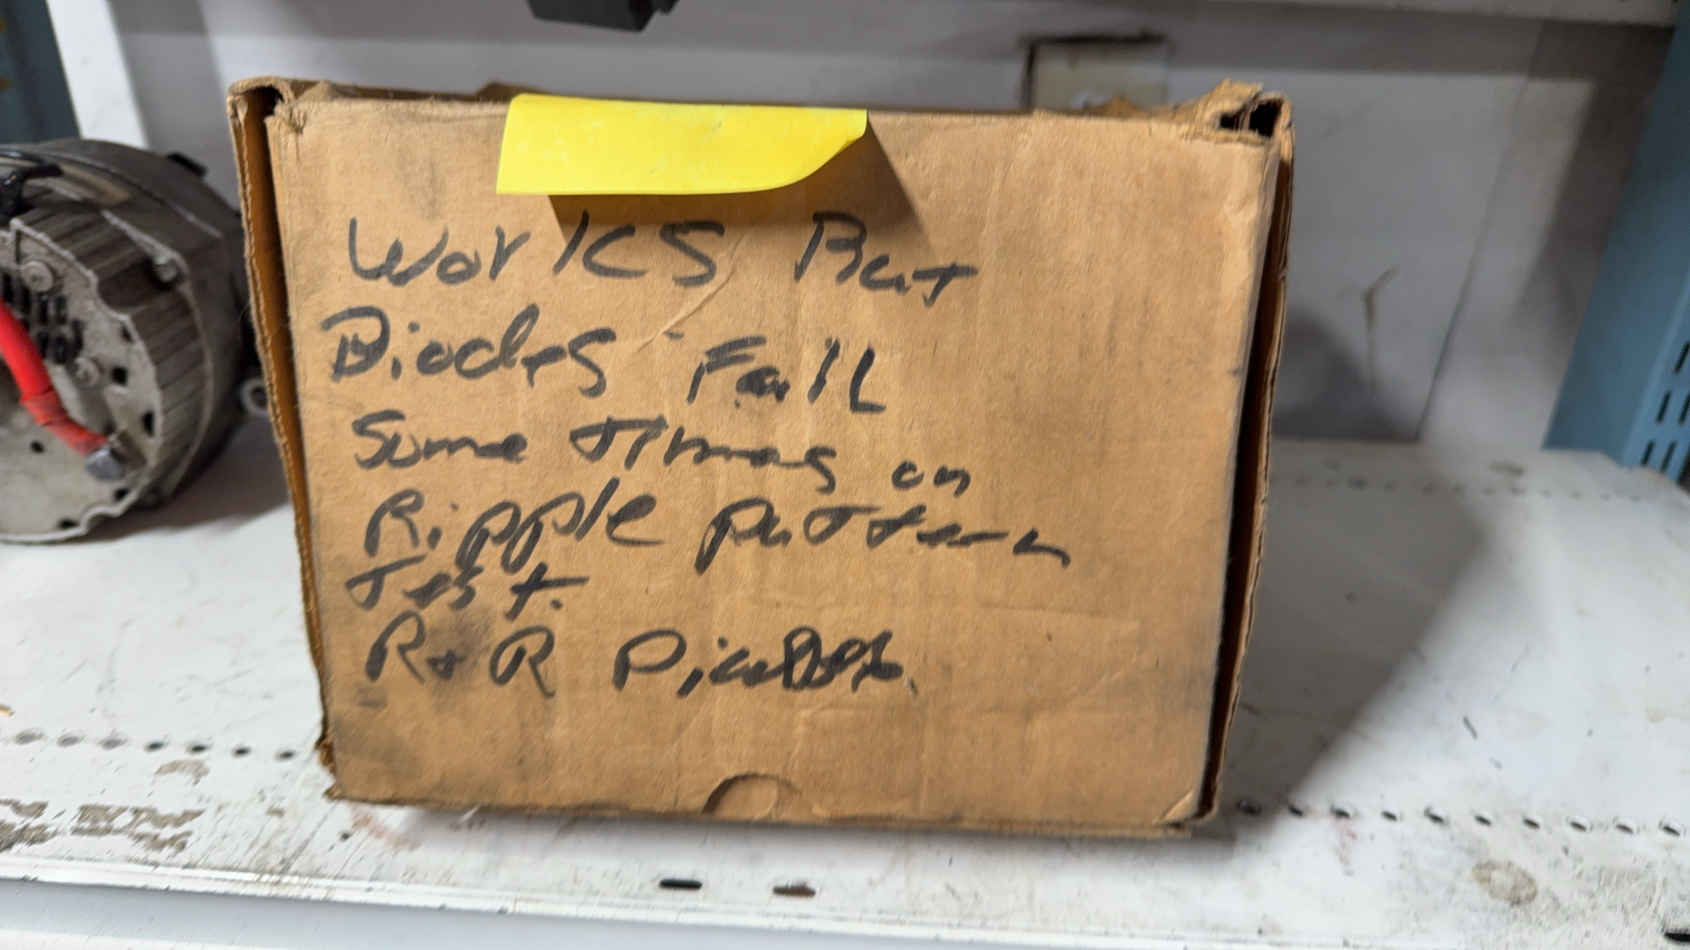 Works But
Diodes Fail
Some times on
Ripple pattern
Test.
R & R